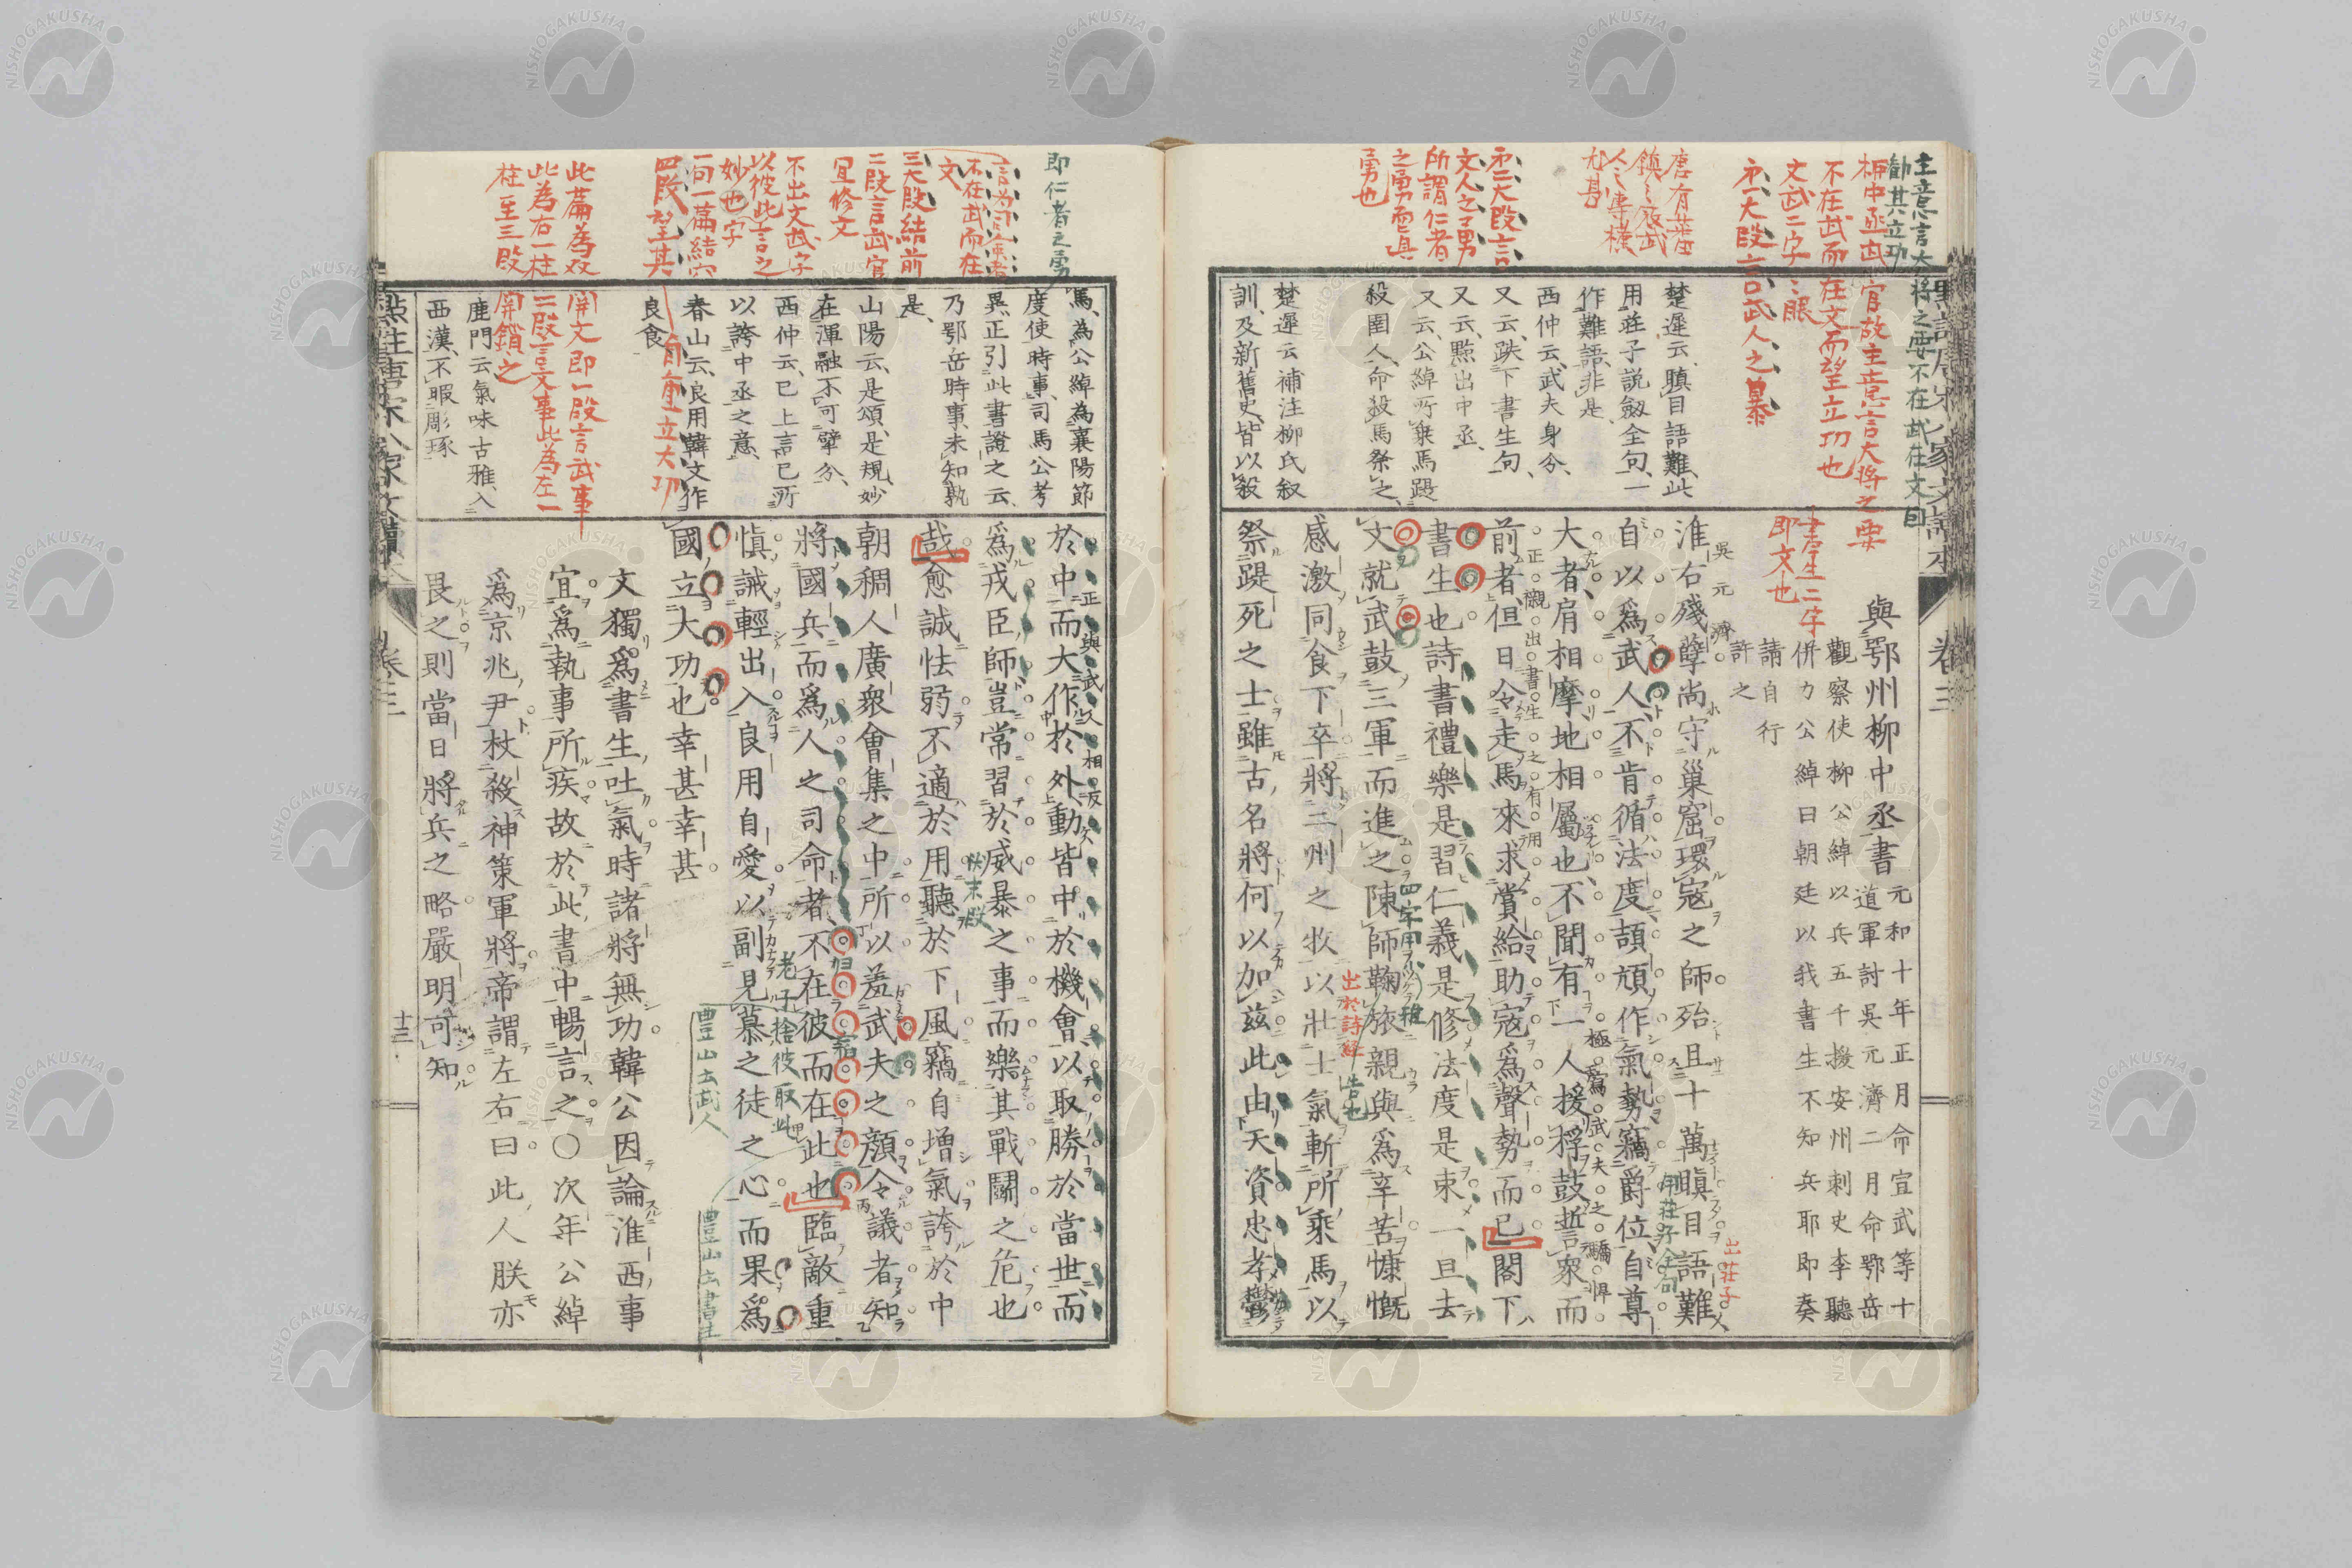 主意言大將之要不在武在文曰
勸其立功
柳中丞武官故主意言大將之要
不在武而在文而望立功也
文武二字々眼
第一大段言武人之暴
書生二字
即文也
唐有藩
鎮之廢武
人之專橫
尤甚
第二大段言
文人之勇
所謂仁者
之勇而真
勇也
楚遲云、瞋目語難、此
用莊子說劔全句、一
作難語、非是、
西仲云、武夫身分、
又云、跌下書生句、
又云、點出中丞、
又云、公綽所乘馬踶
殺圉人、命殺馬祭之、
楚遲云補注柳氏叙
訓、及新舊史、皆以殺
卷三
與鄂州柳中丞書
元和十年正月命宣武等十
道軍討吳元濟二月命鄂岳
觀察使柳公綽以兵五千授安州刺史李聽
併力公綽曰朝廷以我書生不知兵耶即奏
請自行
許之
淮右殘孽尚守巢窟環寇之師殆且十萬瞋目語難
吳元濟
出莊子
用莊子全句
自以爲武人不肯循法度頡頏作氣勢竊爵位自尊
大者肩相摩地相屬也不聞有一人援桴鼓誓衆而
極寫武夫之驕悍
前者但日令走馬來求賞給助寇爲聲勢而已閤下
正襯出書生之有用
書生也詩書禮樂是習仁義是修法度是束一旦去
文就武鼓三軍而進之陳師鞠旅親與爲辛苦慷慨
出於詩經
告也
感激同食下卒將二州之牧以壯士氣斬所乘馬以
祭踶死之士雖古名將何以加兹此由天資忠孝鬱
即仁者之勇
不在武而在
文
三大段結前
二段言武官
宜修文
不出文武字
以彼此言之
妙也字
一句一篇結穴
四段望其
肩重立大功
此篇為双
關文即一段言武事
此為右一柱
二段言文事此為左一
柱至三段
關鎖之
馬、為公綽為襄陽節
度使時事、司馬公考
異、正引此書證之云、
乃鄂岳時事、未知孰
是、
山陽云、是頌、是規、妙
在渾融不可擘分、
西仲云、已上言已所
以誇中丞之意、
春山云、良用韓文作
良食、
鹿門云氣味古雅、入
西漢、不暇彫琢
於中而大作於外動皆中於機會以取勝於當世而
正與武人相反
爲戎臣師豈常習於威暴之事而樂其戰鬭之危也
哉愈誠怯弱不適於用聽於下風竊自增氣誇於中
伏末段
朝稠人廣衆會集之中所以羞武夫之顔令議者知
將國兵而爲人之司命者不在彼而在此也臨敵重
老子捨彼取此
愼誡輕出入良用自愛以副見慕之徒之心而果爲
豊山云武人
豊山云書生
國立大功也幸甚幸甚
文獨爲書生吐氣時諸將無功韓公因論淮西事
宜爲執事所疾故於此書中暢言之〇次年公綽
爲京兆尹杖殺神策軍將帝謂左右曰此人朕亦
畏之則當日將兵之略嚴明可知
點註唐宋八家文讀本
卷三
十三
NISHOGAKUSHA